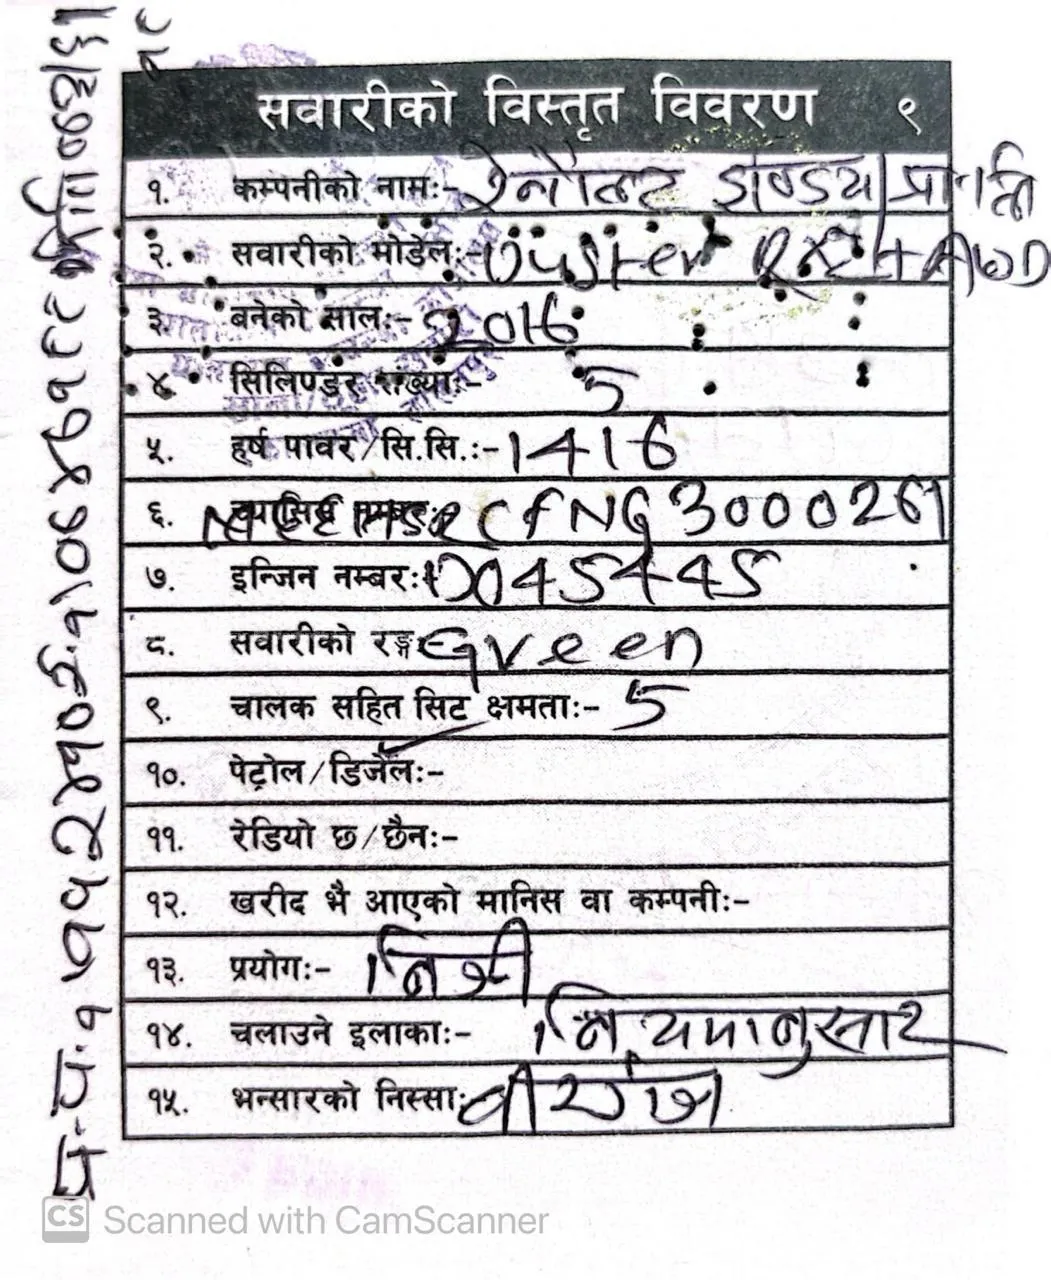 सवारीको विस्तृत विवरण ९
१. कम्पनीको नामः- रेनौल्ट इण्डिया प्रा लि
२. सवारीको मोडेलः- Duster RXZ AWD
३. बनेको सालः- 2016
४. सिलिण्डर संख्याः- 5
५. हर्ष पावर/सि.सि.ः- 1416
६. च्यासिस नम्बरः CfNG3000261
७. इन्जिन नम्बरः D045445
८. सवारीको रङ्ग Green
९. चालक सहित सिट क्षमताः- 5
१०. पेट्रोल/डिजेलः-
११. रेडियो छ/छैनः-
१२. खरीद भै आएको मानिस वा कम्पनीः-
१३. प्रयोगः- निजी
१४. चलाउने इलाकाः- नियमानुसार
१५. भन्सारको निस्साः
CS Scanned with CamScanner